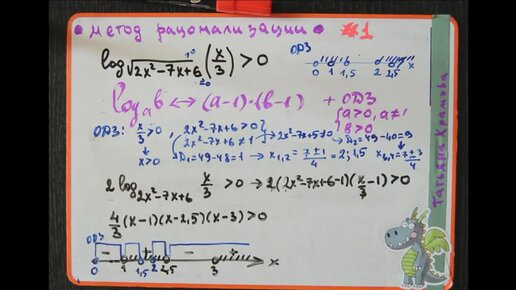 • метод рационализации • #1
log√(2x²-7x+6) (x/3) > 0
ОДЗ
0 1 1,5 2 2,5 x
log_a b ↔ (a-1)·(b-1) + ОДЗ
{a>0, a≠1
b>0
ОДЗ: x/3 > 0, {2x²-7x+6>0
2x²-7x+6≠1 → 2x²-7x+5≠0 → D₂=49-40=9
x>0
D₁=49-48=1 x₁,₂ = (7±1)/4 = 2; 1,5 x₃,₄ = (7±3)/4
2 log_(2x²-7x+6) x/3 > 0 → 2(2x²-7x+6-1)(x/3-1)>0
4/3 (x-1)(x-2,5)(x-3)>0
ОДЗ
- + - +
0 1 1,5 2 2,5 3 x
Татьяна Храмова